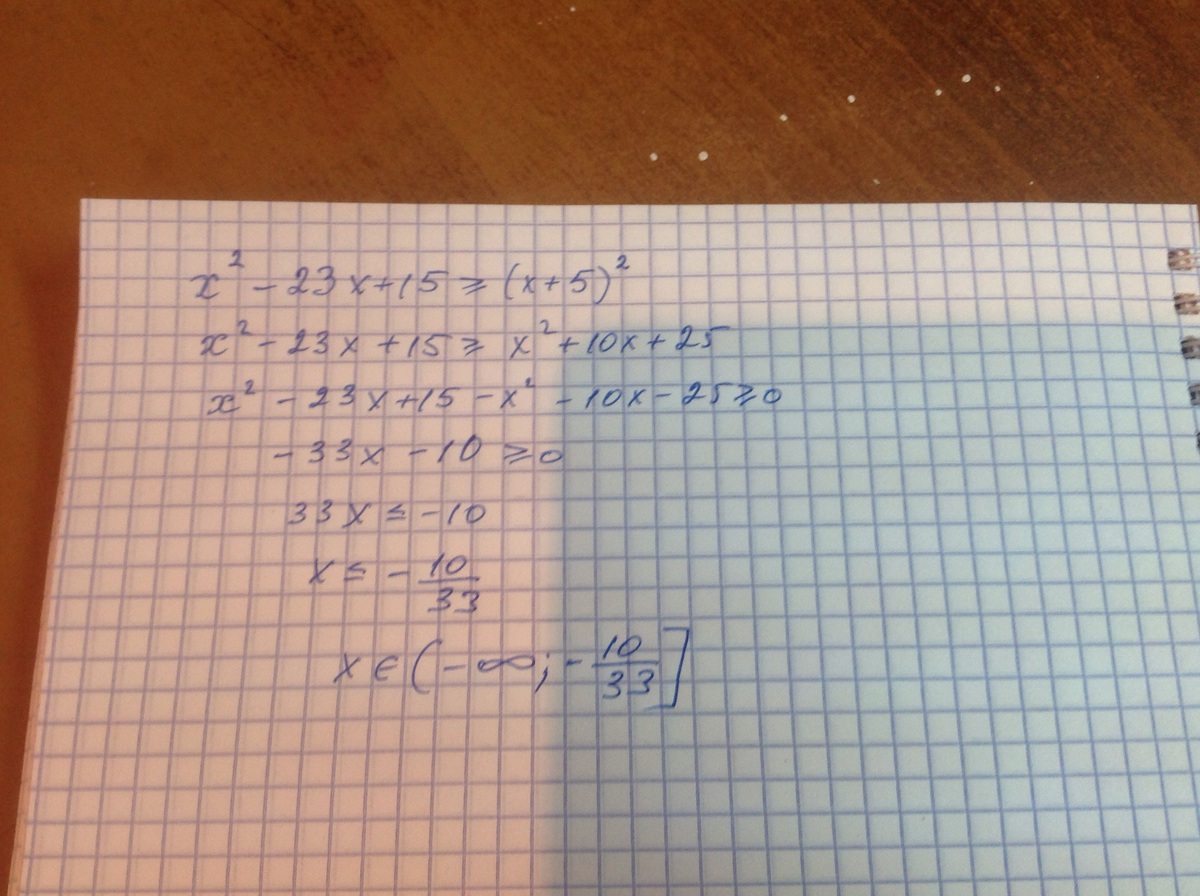 x² - 23x + 15 ⩾ (x + 5)²
x² - 23x + 15 ⩾ x² + 10x + 25
x² - 23x + 15 - x² - 10x - 25 ⩾ 0
- 33x - 10 ⩾ 0
33x ≤ -10
x ≤ - 10/33
x ∈ (-∞; - 10/33]